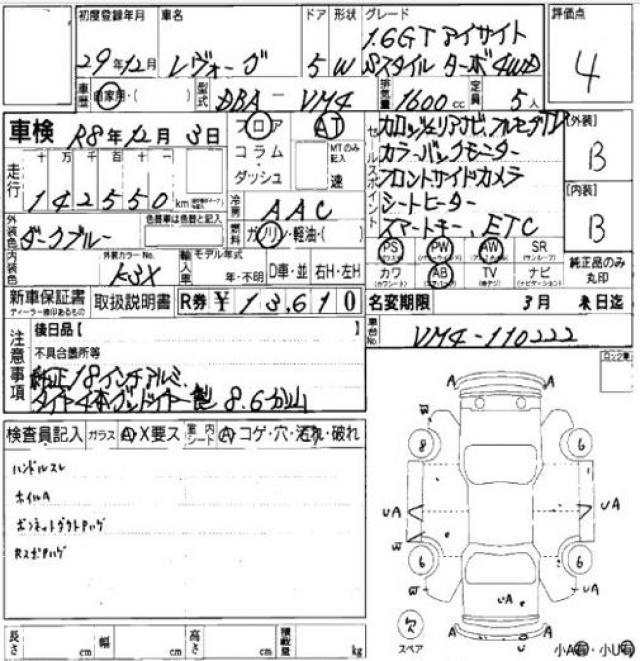 初度登録年月 車名 ドア 形状 グレード 評価点
29年12月 レヴォーグ 5 W 1.6GT アイサイト
Sスタイル ターボ4WD
4
車歴 自家用・( ) 型式 DBA-VM4 排気量 1600cc 定員 5人
車検 R8年12月3日 フロア AT
コラム・ MTのみ記入
ダッシュ 速
走行 十 万 千 百 十 一
142550 km
冷房 AAC
燃料 ガソリン・軽油・( )
外装色 ダークブルー 色替車は色替と記入
内装色 外装カラーNo. K3X
輸入車 モデル年式 年・不明 D車・並 右H・左H
セールスポイント カロッツェリアナビ、フルセグTV
カラーバックモニター
フロントサイドカメラ
シートヒーター
スマートキー、ETC
[外装] B
[内装] B
PS PW AW SR (サンルーフ)
カワ (カワシート) AB TV ナビ (ナビゲーション)
純正品のみ丸印
新車保証書 ディーラー捺印あるもの 取扱説明書 R券 ¥13,610 名変期限 3月 末日迄
注意事項 後日品【 】
車台No. VM4-110222
不具合箇所等
純正18インチアルミ
タイヤ4本グッドイヤー製 8.6分山
検査員記入 ガラス A・X要ス 室内シート A・コゲ・穴・汚れ・破れ
ハンドルスレ
ホイルA
ボンネットダクトPハゲ
RスポPハゲ
ロック車
A A
W
8 6
UA UA
W
6 6
W UA
UA
A A
U
スペア
小A有・小U有
長さ cm 幅 cm 高さ cm 積載量 kg